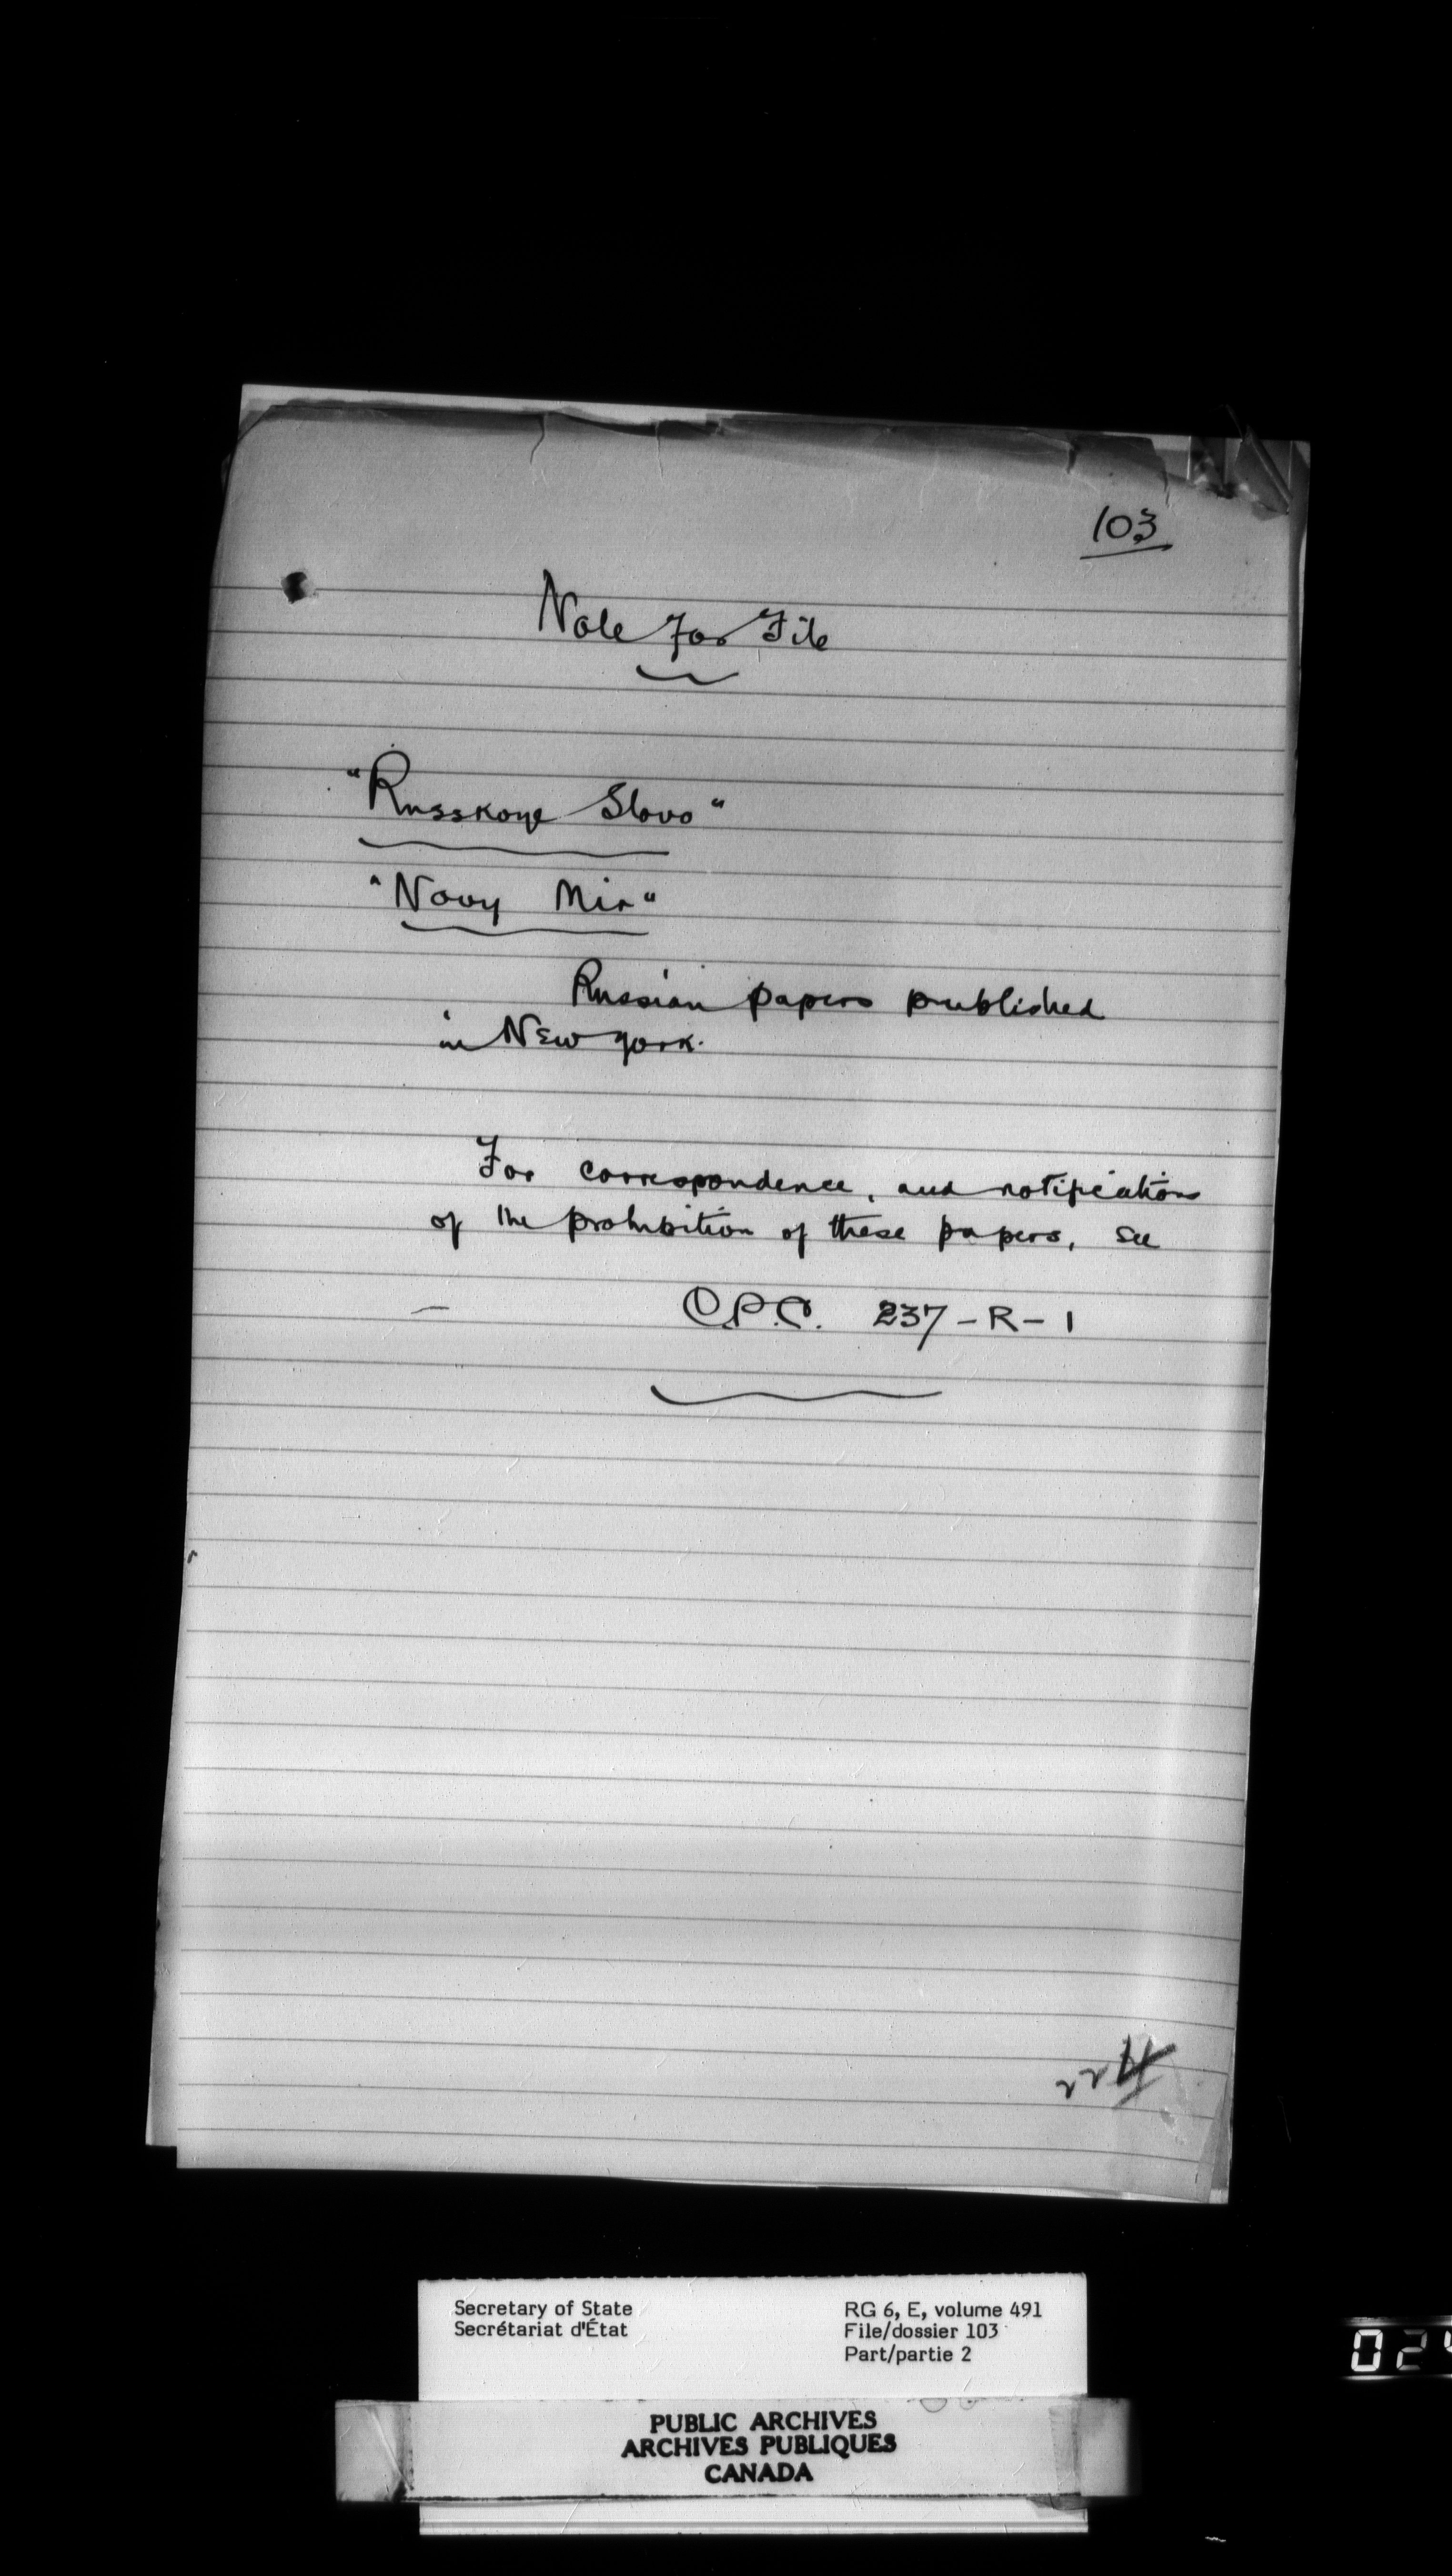 103
Note for File
"Russkoye Slovo"
"Novy Mir"
Russian papers published
in New York.
For correspondence, and notifications
of the prohibition of these papers, see
C.P.C. 237-R-1
224
Secretary of State
Secrétariat d'État
RG 6, E, volume 491
File/dossier 103
Part/partie 2
PUBLIC ARCHIVES
ARCHIVES PUBLIQUES
CANADA